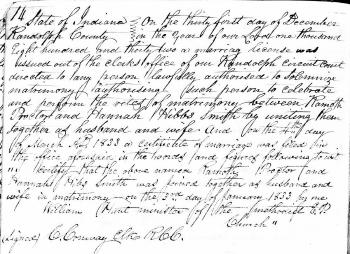 14
State of Indiana } On the thirty first day of December
Randolph County } in the Year of our Lord one thousand
Eight hundred and thirty two a marriag License was
issued out of the clerks office of our Randolph circuit court
directed to any person lawfully authorised to solemnize
matrimony authorising such person to celebrate
and perform the rites of matrimony between Timothy
Proctor and Hannah Hibbs Smith by uniting them
together as husband and wife And on the 4th day
of March AD 1833 a certificate was filed in
the office aforesaid in the words and figures following to wit
"I certify that the above named Timothy Proctor and
Hannah Hibbs Smith was joined together as husband and
wife in matrimony on the 3rd day of January 1833 by me
William Hunt minister of the Methodist E.
Church"
Signed C. Conway Clk R.C.C.